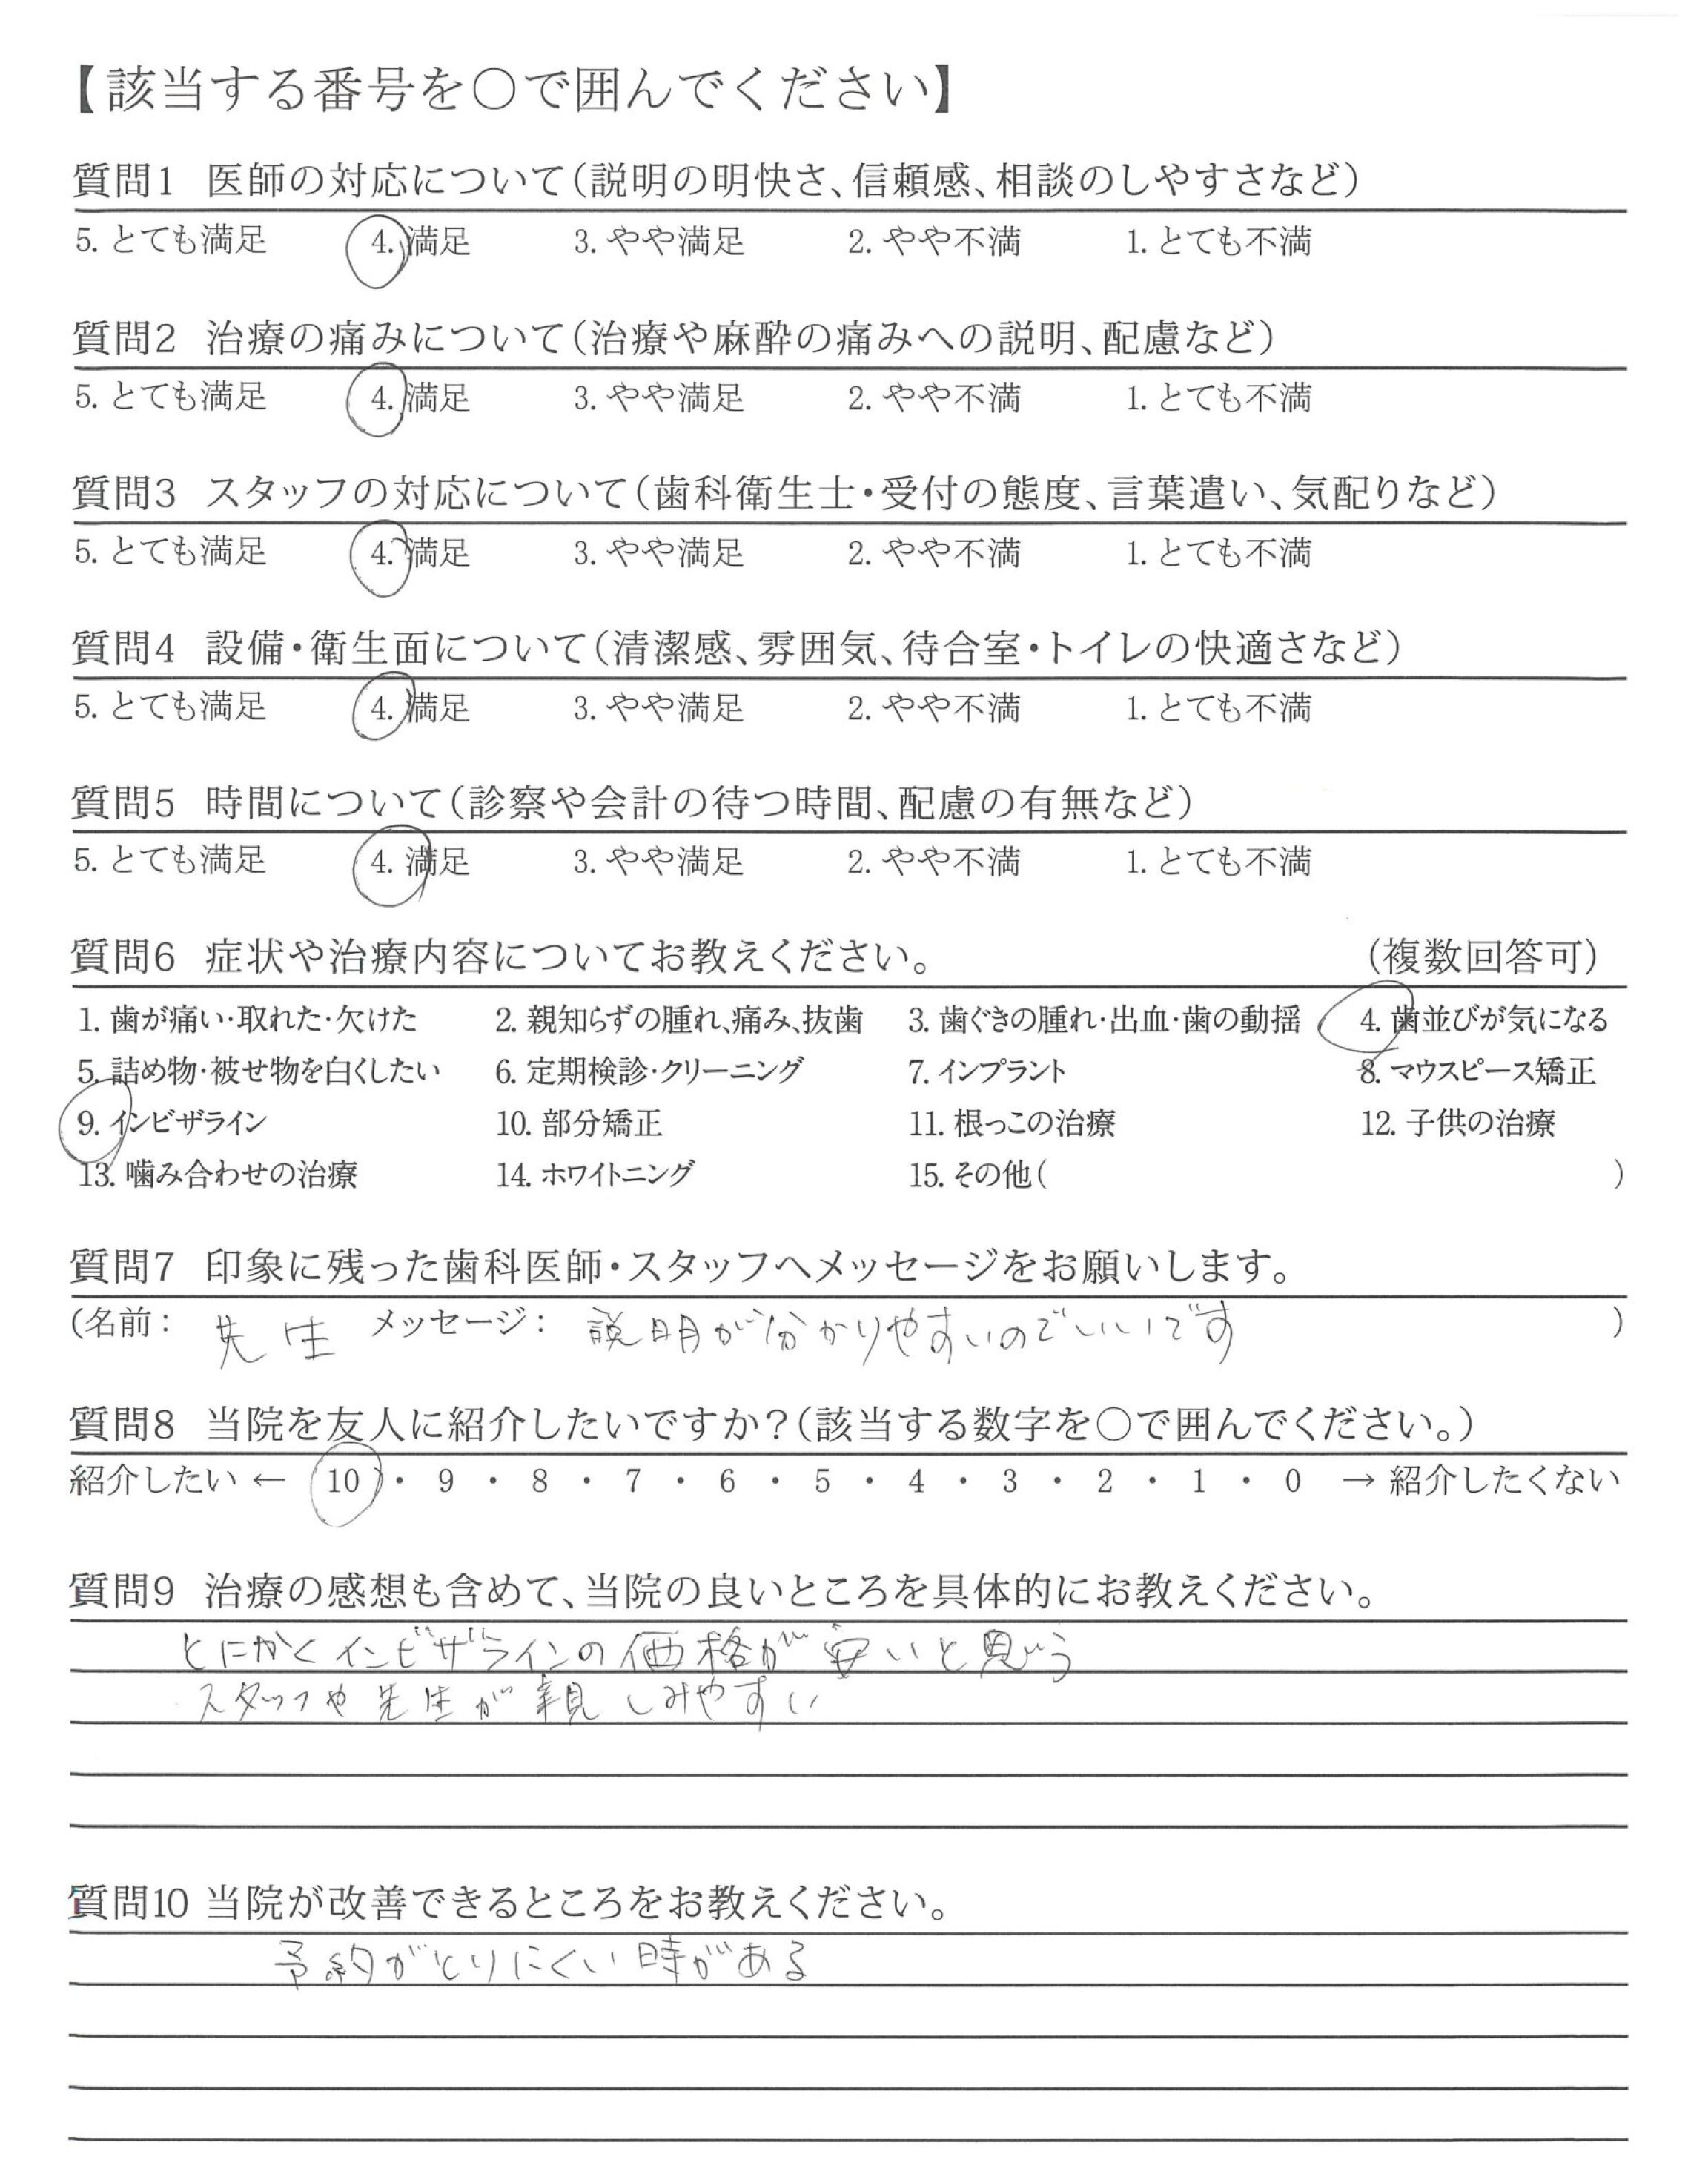 【該当する番号を○で囲んでください】
質問1 医師の対応について(説明の明快さ、信頼感、相談のしやすさなど)
5. とても満足 4. 満足 3. やや満足 2. やや不満 1. とても不満
質問2 治療の痛みについて(治療や麻酔の痛みへの説明、配慮など)
5. とても満足 4. 満足 3. やや満足 2. やや不満 1. とても不満
質問3 スタッフの対応について(歯科衛生士・受付の態度、言葉遣い、気配りなど)
5. とても満足 4. 満足 3. やや満足 2. やや不満 1. とても不満
質問4 設備・衛生面について(清潔感、雰囲気、待合室・トイレの快適さなど)
5. とても満足 4. 満足 3. やや満足 2. やや不満 1. とても不満
質問5 時間について(診察や会計の待つ時間、配慮の有無など)
5. とても満足 4. 満足 3. やや満足 2. やや不満 1. とても不満
質問6 症状や治療内容についてお教えください。 (複数回答可)
1. 歯が痛い・取れた・欠けた 2. 親知らずの腫れ、痛み、抜歯 3. 歯ぐきの腫れ・出血・歯の動揺 4. 歯並びが気になる
5. 詰め物・被せ物を白くしたい 6. 定期検診・クリーニング 7. インプラント 8. マウスピース矯正
9. インビザライン 10. 部分矯正 11. 根っこの治療 12. 子供の治療
13. 噛み合わせの治療 14. ホワイトニング 15. その他( )
質問7 印象に残った歯科医師・スタッフへメッセージをお願いします。
(名前: 先生 メッセージ: 説明が分かりやすいのでいいです )
質問8 当院を友人に紹介したいですか?(該当する数字を○で囲んでください。)
紹介したい ← 10 ・ 9 ・ 8 ・ 7 ・ 6 ・ 5 ・ 4 ・ 3 ・ 2 ・ 1 ・ 0 → 紹介したくない
質問9 治療の感想も含めて、当院の良いところを具体的にお教えください。
とにかくインビザラインの価格が安いと思う
スタッフや先生が親しみやすい
質問10 当院が改善できるところをお教えください。
予約がとりにくい時がある